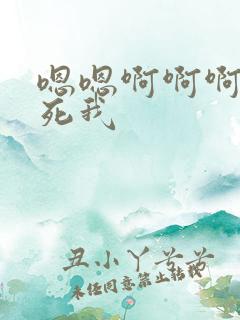 嗯嗯啊啊啊
死我
丑小丫苦苦
未经同意禁止转载